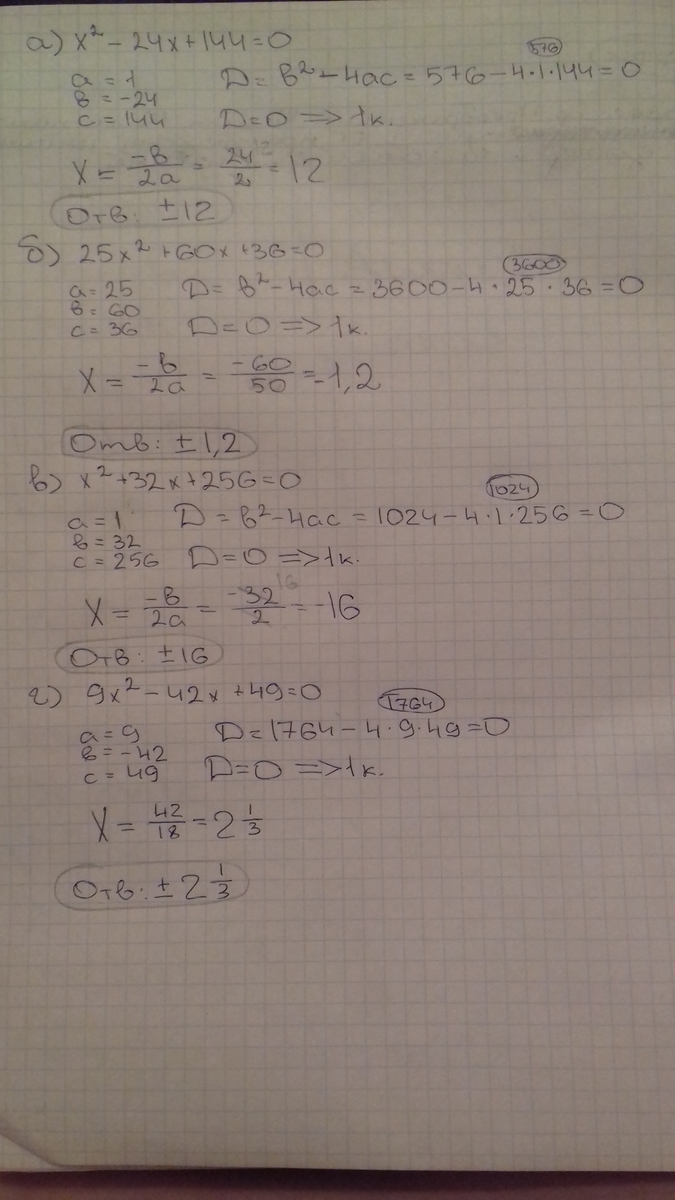 а) x² - 24x + 144 = 0
576
a = 1 D = b² - 4ac = 576 - 4·1·144 = 0
b = -24
c = 144 D = 0 => 1к.
X = -b/2a = 24/2 = 12
Отв: ±12
б) 25x² + 60x + 36 = 0
3600
a = 25 D = b² - 4ac = 3600 - 4·25·36 = 0
b = 60
c = 36 D = 0 => 1к.
X = -b/2a = -60/50 = -1,2
Отв: ±1,2
в) x² + 32x + 256 = 0
1024
a = 1 D = b² - 4ac = 1024 - 4·1·256 = 0
b = 32
c = 256 D = 0 => 1к.
16
X = -b/2a = -32/2 = -16
Отв: ±16
г) 9x² - 42x + 49 = 0
1764
a = 9 D = 1764 - 4·9·49 = 0
b = -42
c = 49 D = 0 => 1к.
X = 42/18 = 2 1/3
Отв: ±2 1/3